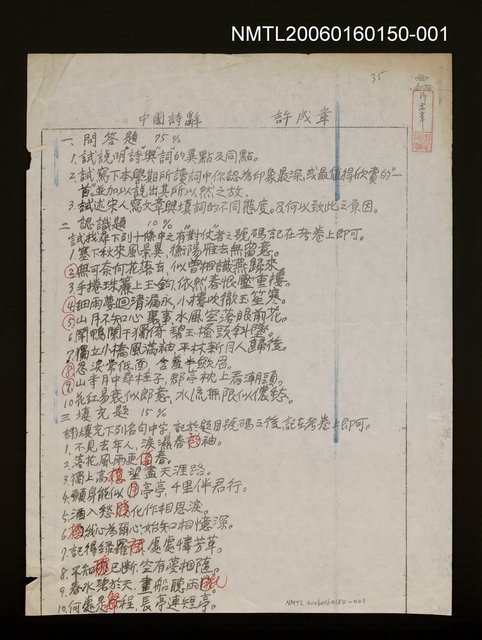 NMTL20060160150-001
35
中國詩辭 許成章
一、問答題 75%
1.試說明"詩"與"詞"的異點及同點。
2.試寫下本學期所讀詞中你認為印象最深,或最值得欣賞的"一
首"並加以說出其所以然之故。
3.試述宋人寫文章與填詞的不同態度,及何以致此之原因。
二 認識題 10%
試找尋下列十條中之有"對仗"者之號碼記在考卷上即可。
1.塞下秋來風景異,衡陽雁去無留意。
2.無可奈何花落去,似曾相識燕歸來
3.手捲珠簾上玉鉤,依然春恨鎖重樓。
4.細雨夢迴清漏永,小樓吹徹玉笙寒。
5.山月不知心裏事,水風空落眼前花。
6.鬥鴨闌干獨倚,碧玉搔頭斜墜。
7.獨立小橋風滿袖,平林新月人歸後。
8.忍淚佯低面,含羞半斂眉。
9.山寺月中尋桂子,郡亭枕上看潮頭。
10.花紅易衰似郎意,水流無限似儂愁。
三 填充題 15%
請填充下列名句中字,記於題目號碼之後,記在考卷上即可。
1.不見去年人,淚濕春衫袖。
2.落花風雨更傷春。
3.獨上高樓,望盡天涯路。
4.願身能似月亭亭,千里伴君行。
5.酒入愁腸化作相思淚。
6.換我心為爾心,始知相憶深。
7.記得綠羅裙,處處憐芳草。
8.不知魂已斷,空有夢相隨。
9.春水碧於天,畫船聽雨眠
10.何處是歸程,長亭連短亭。
NMTL 20060160150-001